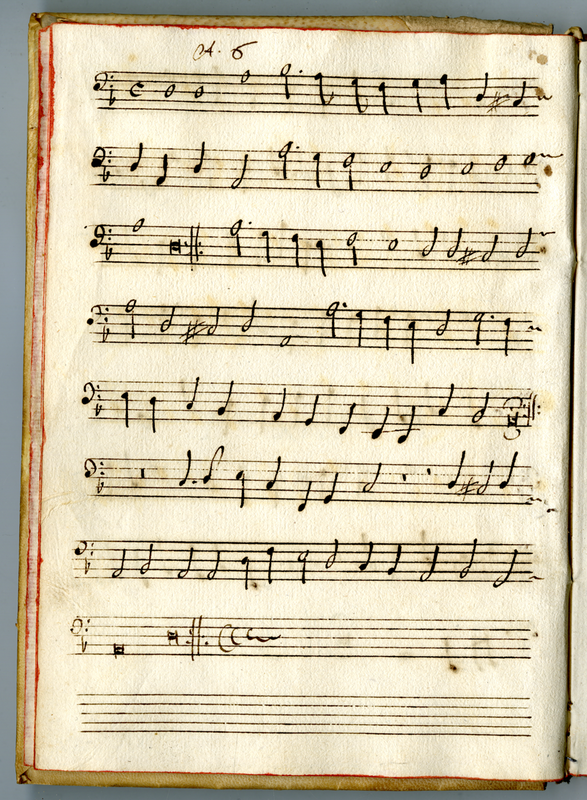 A. 6